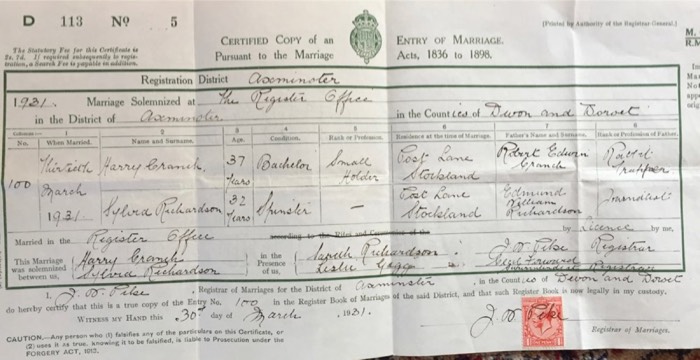 D 113 No 5
[Printed by Authority of the Registrar General.]
CERTIFIED COPY of an ENTRY OF MARRIAGE.
Pursuant to the Marriage Acts, 1836 to 1898.
M.
The Statutory Fee for this Certificate is
2s. 7d. If required subsequently to registration, a Search Fee is payable in addition.
Registration District Axminster
1931. Marriage Solemnized at The Register Office
in the District of Axminster in the Counties of Devon and Dorset
Columns:— 1 2 3 4 5 6 7 8
No. When Married. Name and Surname. Age. Condition. Rank or Profession. Residence at the time of Marriage. Father's Name and Surname. Rank or Profession of Father.
100 Thirtieth March 1931 Harry Cranch 37 years Bachelor Small Holder Post Lane Stockland Robert Edwin Cranch
Sylvia Richardson 32 years Spinster — Post Lane Stockland Edmund William Richardson
Married in the Register Office according to the Rites and Ceremonies of the by Licence by me,
This Marriage was solemnized between us, Harry Cranch Sylvia Richardson in the Presence of us, Richardson Leslie J. W. Pike Registrar
Registrar
I, J. W. Pike, Registrar of Marriages for the District of Axminster, in the Counties of Devon and Dorset
do hereby certify that this is a true copy of the Entry No. 100 in the Register Book of Marriages of the said District, and that such Register Book is now legally in my custody.
WITNESS MY HAND this 30th day of March, 1931.
J. W. Pike
Registrar of Marriages.
CAUTION.—Any person who (1) falsifies any of the particulars on this Certificate, or
(2) uses it as true, knowing it to be falsified, is liable to Prosecution under the
FORGERY ACT, 1913.